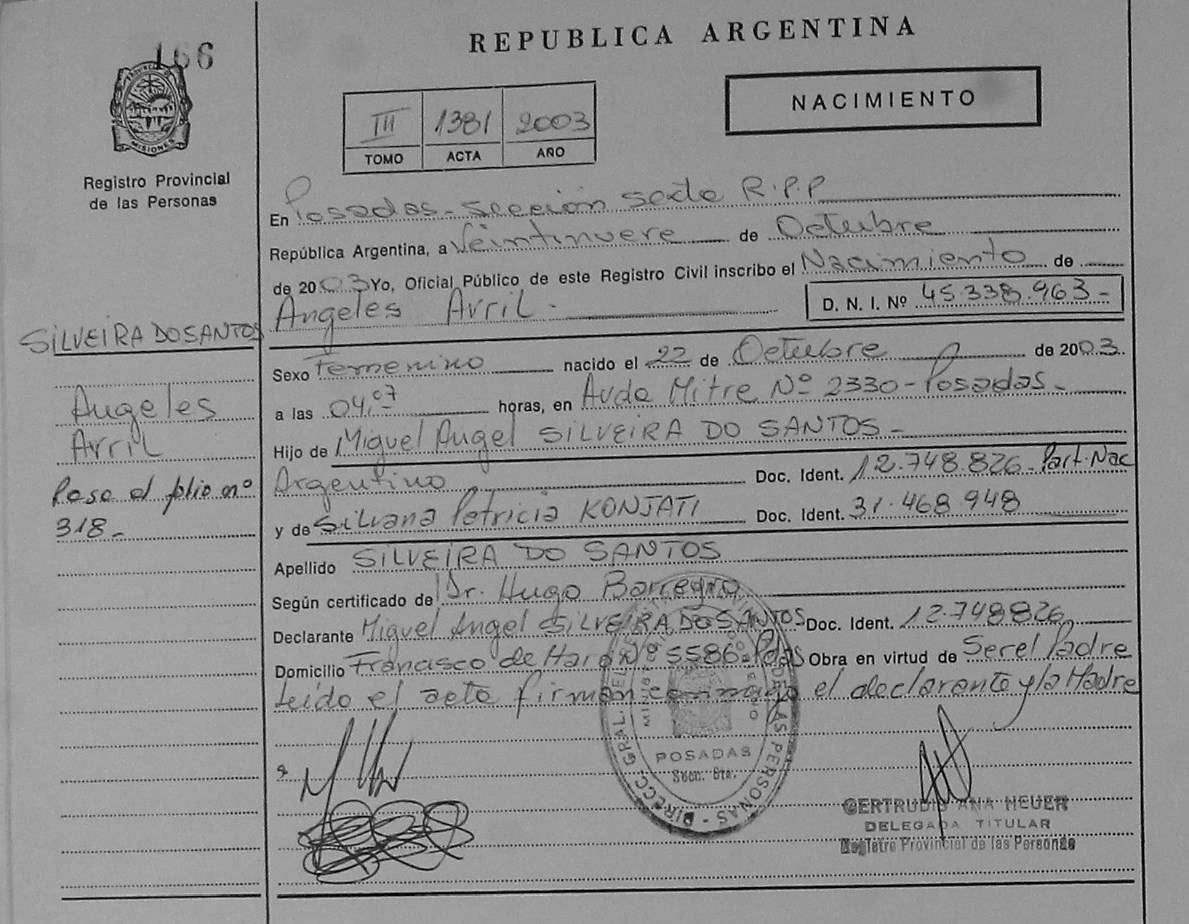 166
REPUBLICA ARGENTINA
NACIMIENTO
III 1381 2003
TOMO ACTA AÑO
MISIONES
Registro Provincial
de las Personas
En Posadas - Sección sexta R.P.P
República Argentina, a Veintinueve de Octubre
de 2003 Yo, Oficial Público de este Registro Civil inscribo el Nacimiento de
Angeles Avril - D. N. I. Nº 45.338.963-
SILVEIRA DO SANTOS
Angeles
Avril
Pasa al folio nº
318-
Sexo Femenino nacido el 22 de Octubre de 2003.
a las 04,07 horas, en Avda Mitre Nº 2330 - Posadas -
Hijo de Miguel Angel SILVEIRA DO SANTOS -
Argentino Doc. Ident. 12.748.826- Part. Nac
y de Silvana Patricia KONJATI Doc. Ident. 31.468.948
Apellido SILVEIRA DO SANTOS
Según certificado de Dr. Hugo Barreyro
Declarante Miguel Angel SILVEIRA DO SANTOS Doc. Ident. 12.748826
Domicilio Francisco de Haro Nº 5586- Pdas Obra en virtud de Ser el Padre
Leído el acta firman conmigo el declarante y la Madre
DIRECC. GRAL. DE LAS PERSONAS
POSADAS
Secc. 6ta.
GERTRUDIS ANA HEUER
DELEGADA TITULAR
Registro Provincial de las Personas